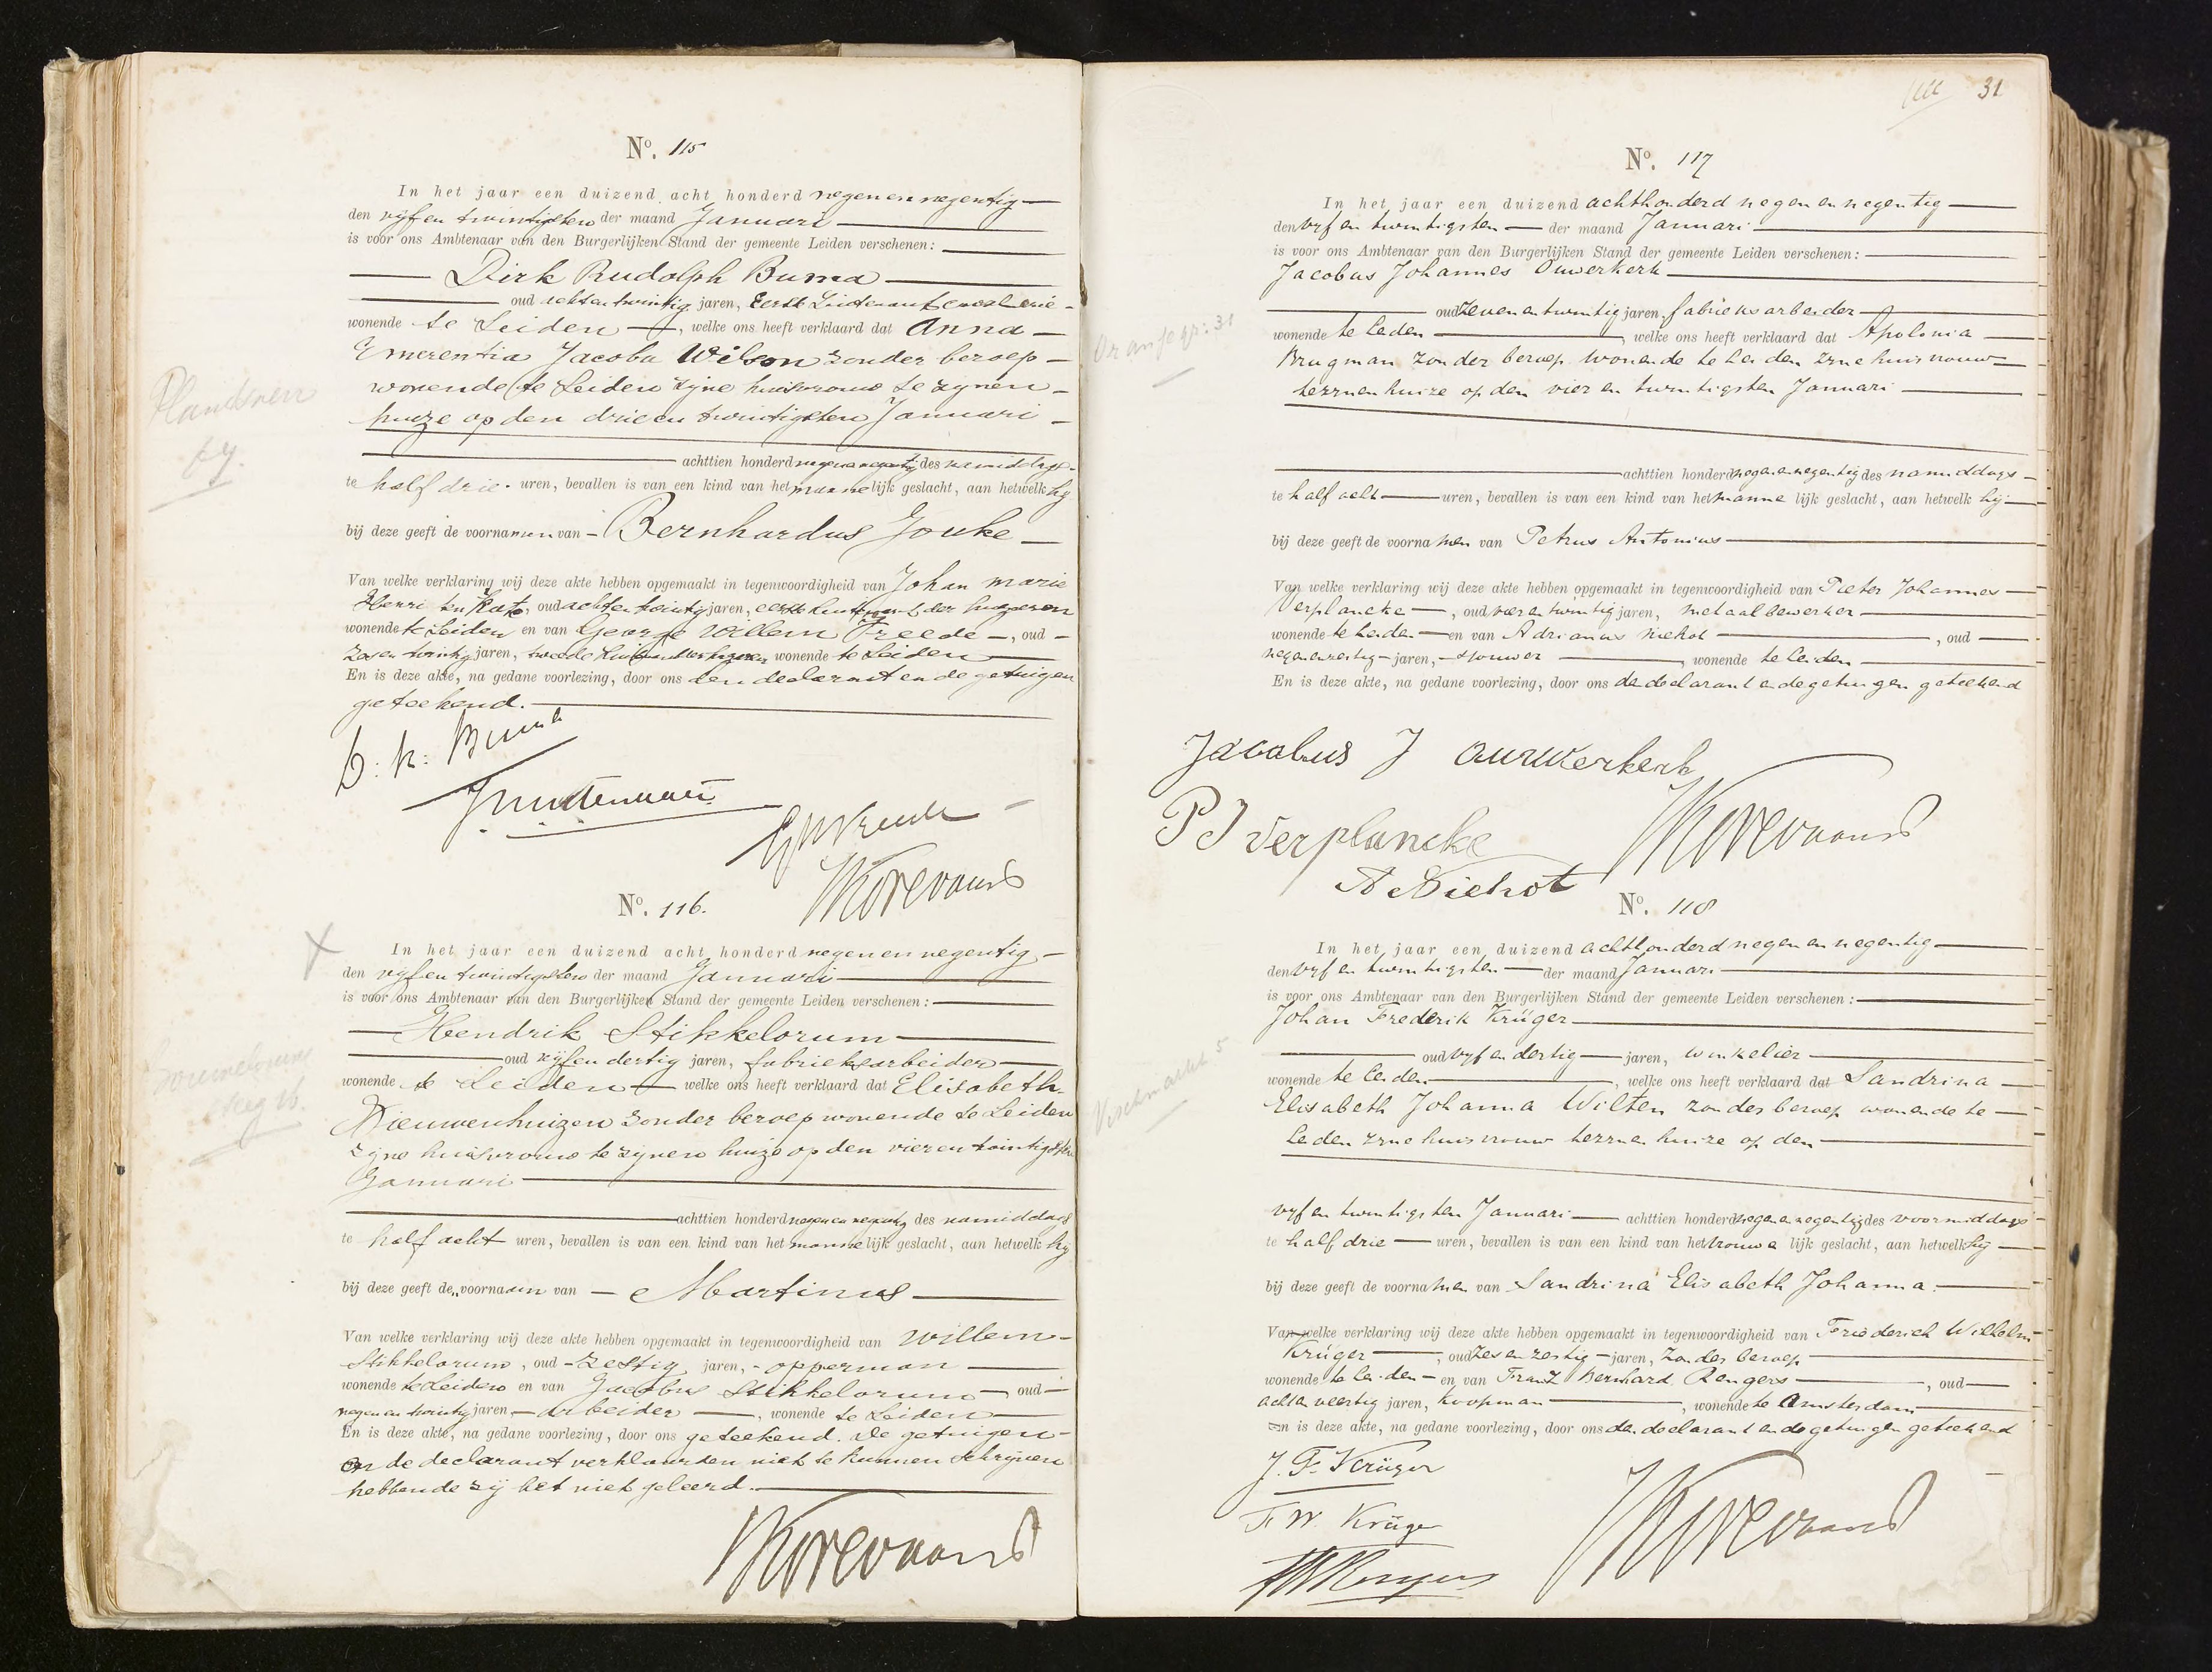 No. 115
In het jaar een duizend acht honderd negen en negentig
den vijf en twintigsten der maand Januari
is voor ons Ambtenaar van den Burgerlijken Stand der gemeente Leiden verschenen:
Dirk Rudolph Buma
oud acht en twintig jaren, Eerste Luitenant cavalerie
wonende te Leiden, welke ons heeft verklaard dat Anna
Emerentia Jacoba Wilson zonder beroep
wonende te Leiden zijne huisvrouw te zijnen
huize op den drie en twintigsten Januari
achttien honderd negen en negentig des namiddags
te half drie uren, bevallen is van een kind van het mannelijk geslacht, aan hetwelk hij
bij deze geeft de voornamen van Bernhardus Jouke
Van welke verklaring wij deze akte hebben opgemaakt in tegenwoordigheid van Johan Marie
Henri ten Kate, oud acht en twintig jaren, eerste luitenant der huzaren
wonende te Leiden en van George Willem Freede, oud
zes en twintig jaren, tweede luitenant der huzaren wonende te Leiden
En is deze akte, na gedane voorlezing, door ons den declarant en de getuigen
geteekend.
D: R: Buma
Korevaar
No. 116.
In het jaar een duizend acht honderd negen en negentig
den vijf en twintigsten der maand Januari
is voor ons Ambtenaar van den Burgerlijken Stand der gemeente Leiden verschenen:
Hendrik Stikkelorum
oud vijf en dertig jaren, fabrieksarbeider
wonende te Leiden welke ons heeft verklaard dat Elisabeth
Nieuwenhuizen zonder beroep wonende te Leiden
zijne huisvrouw te zijnen huize op den vier en twintigsten
Januari
achttien honderd negen en negentig des namiddags
te half acht uren, bevallen is van een kind van het mannelijk geslacht, aan hetwelk hij
bij deze geeft de voornaam van Martinus
Van welke verklaring wij deze akte hebben opgemaakt in tegenwoordigheid van Willem
Stikkelorum, oud zestig jaren, opperman
wonende te Leiden en van Jacobus Stikkelorum oud
negen en twintig jaren, arbeider, wonende te Leiden
En is deze akte, na gedane voorlezing, door ons geteekend. De getuigen
en de declarant verklaarden niet te kunnen schrijven
hebbende zij het niet geleerd.
Korevaar
31
No. 117
In het jaar een duizend achthonderd negen en negentig
den vyf en twintigsten der maand Januari
is voor ons Ambtenaar van den Burgerlijken Stand der gemeente Leiden verschenen:
Jacobus Johannes Ouwerkerk
oud zeven en twintig jaren, fabrieksarbeider
wonende te Leiden, welke ons heeft verklaard dat Apolonia
Brugman zonder beroep wonende te Leiden zyne huisvrouw
te zynen huize op den vier en twintigsten Januari
achttien honderd negen en negentig des namiddags
te half acht uren, bevallen is van een kind van het mannelijk geslacht, aan hetwelk hij
bij deze geeft de voornamen van Petrus Antonius
Van welke verklaring wij deze akte hebben opgemaakt in tegenwoordigheid van Pieter Johannes
Verplancke, oud vier en twintig jaren, metaalbewerker
wonende te Leiden en van Adrianus Niehot, oud
negen en zestig jaren, sjouwer, wonende te Leiden
En is deze akte, na gedane voorlezing, door ons den declarant en de getuigen geteekend
Jacobus J Ouwerkerk
P J Verplancke
Korevaar
A Niehot
Oranjegr: 31
No. 118
In het jaar een duizend achthonderd negen en negentig
den vyf en twintigsten der maand Januari
is voor ons Ambtenaar van den Burgerlijken Stand der gemeente Leiden verschenen:
Johan Frederik Krüger
oud vyf en dertig jaren, winkelier
wonende te Leiden, welke ons heeft verklaard dat Sandrina
Elisabeth Johanna Wilten zonder beroep wonende te
Leiden zyne huisvrouw te zynen huize op den
vyf en twintigsten Januari achttien honderd negen en negentig des voormiddags
te half drie uren, bevallen is van een kind van het vrouwelijk geslacht, aan hetwelk hij
bij deze geeft de voornamen van Sandrina Elisabeth Johanna.
Van welke verklaring wij deze akte hebben opgemaakt in tegenwoordigheid van Friederich Wilhelm
Krüger, oud zes en zestig jaren, zonder beroep
wonende te Leiden en van Franz Bernhard Rengers, oud
acht en veertig jaren, koopman, wonende te Amsterdam
En is deze akte, na gedane voorlezing, door ons den declarant en de getuigen geteekend
J. F. Krüger
F W Krüger
Korevaar
Vischmarkt 5